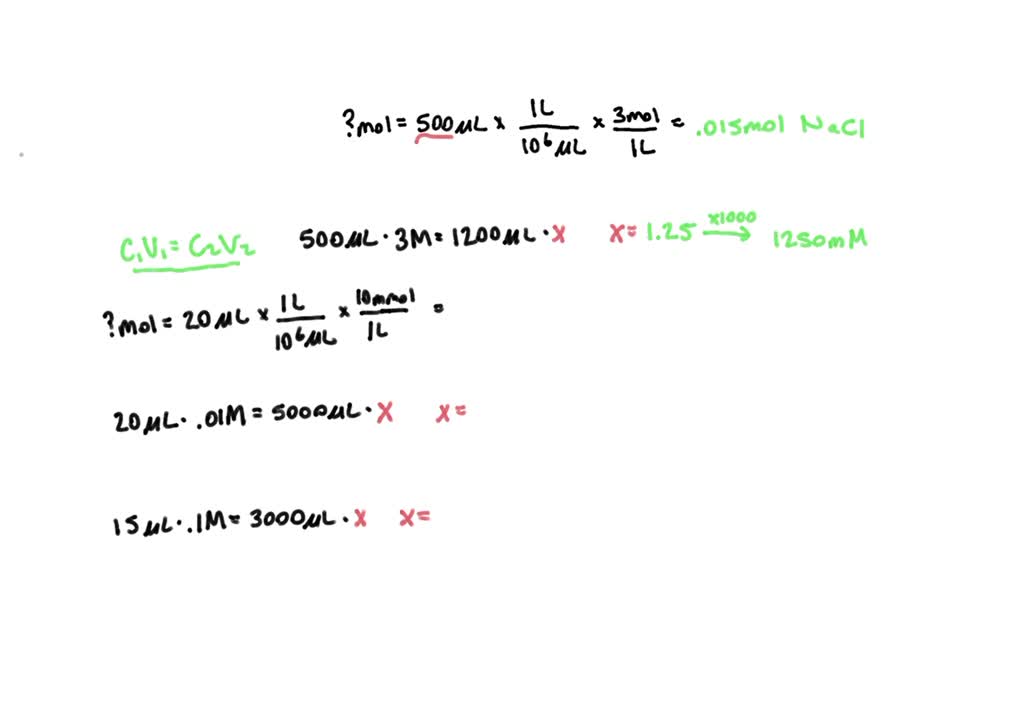 ?mol = 500μL × 1L/10⁶μL × 3mol/1L = .015mol NaCl
C₁V₁ = C₂V₂ 500μL · 3M = 1200μL · x x = 1.25 ×1000→ 1250mM
?mol = 20μL × 1L/10⁶μL × 10mmol/1L =
20μL · .01M = 5000μL · x x =
15μL · .1M = 3000μL · x x =